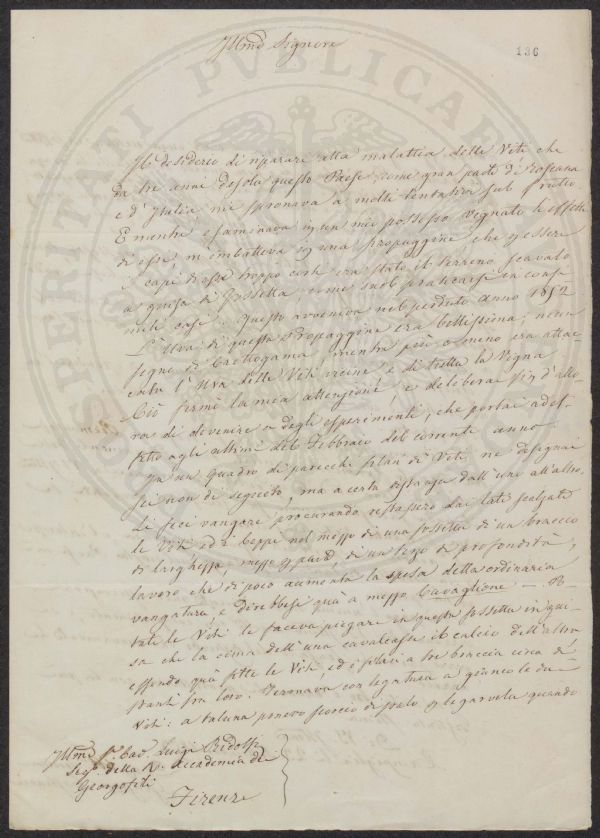 Illmo Signore
136
Il desiderio di riparare alla malattia delle Viti che
da tre anni desola questo Paese come gran parte di Toscana
e d'Italia mi spronava a molti tentativi sul frutto
E mentre esaminava in un mio possesso vignato li effetti
di esse m'imbatteva in una propaggine che per essere
i capi di essa troppo corti era stato il terreno scavato
a guisa di fossetta come suol praticarsi in consi
mili casi. Questo avveniva nel perduto anno 1852
L'Uva di questa Propaggine era bellissima; niun
segno di Crittogama, mentre più o meno era attac
cata l'Uva delle Viti vicine e di tutta la Vigna
Ciò fermò la mia attenzione, e deliberai fin d'allo
ra di divenire a degli esperimenti, che portai ad ef
fetto agli ultimi del Febbraio del corrente anno
In un Quadro di parecchi filari di Viti ne disegnai
sei non di seguito, ma a certa distanza dall'uno all'altro.
Li feci vangare procurando restassero dai lati scalzate
le Viti ed i Ceppi nel mezzo di una fossetta di un braccio
di larghezza, mezzo per parte, di un terzo di profondità,
lavoro che di poco aumenta la spesa della ordinaria
vangatura, e direbbesi quà a mezzo Cavaglione — Po
tate le Viti le faceva piegare in questa fossetta in gui
sa che la cima dell'una cavalcasse il calcio dell'altra
essendo quà fitte le Viti, ed i filari a tre braccia circa di
stanti fra loro. Fermava con legatura a giunco le due
Viti: a taluna ponevo scorcio di palo, e legarvela quando
Illmo Sr. Cav. Luigi Ridolfi
Segro. della R. Accademia de
Georgofili
Firenze
PROSPERITATI PVBLICAE